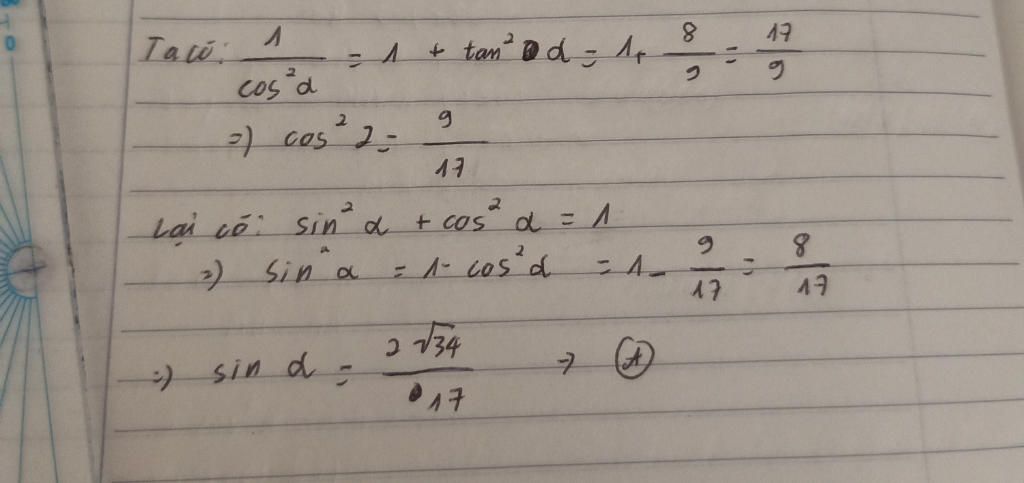 Ta có: 1/cos²α = 1 + tan² α = 1 + 8/9 = 17/9
=) cos² α = 9/17
Lại có: sin² α + cos² α = 1
=) sin² α = 1 - cos² α = 1 - 9/17 = 8/17
=) sin α = 2√34/17 → Ⓐ